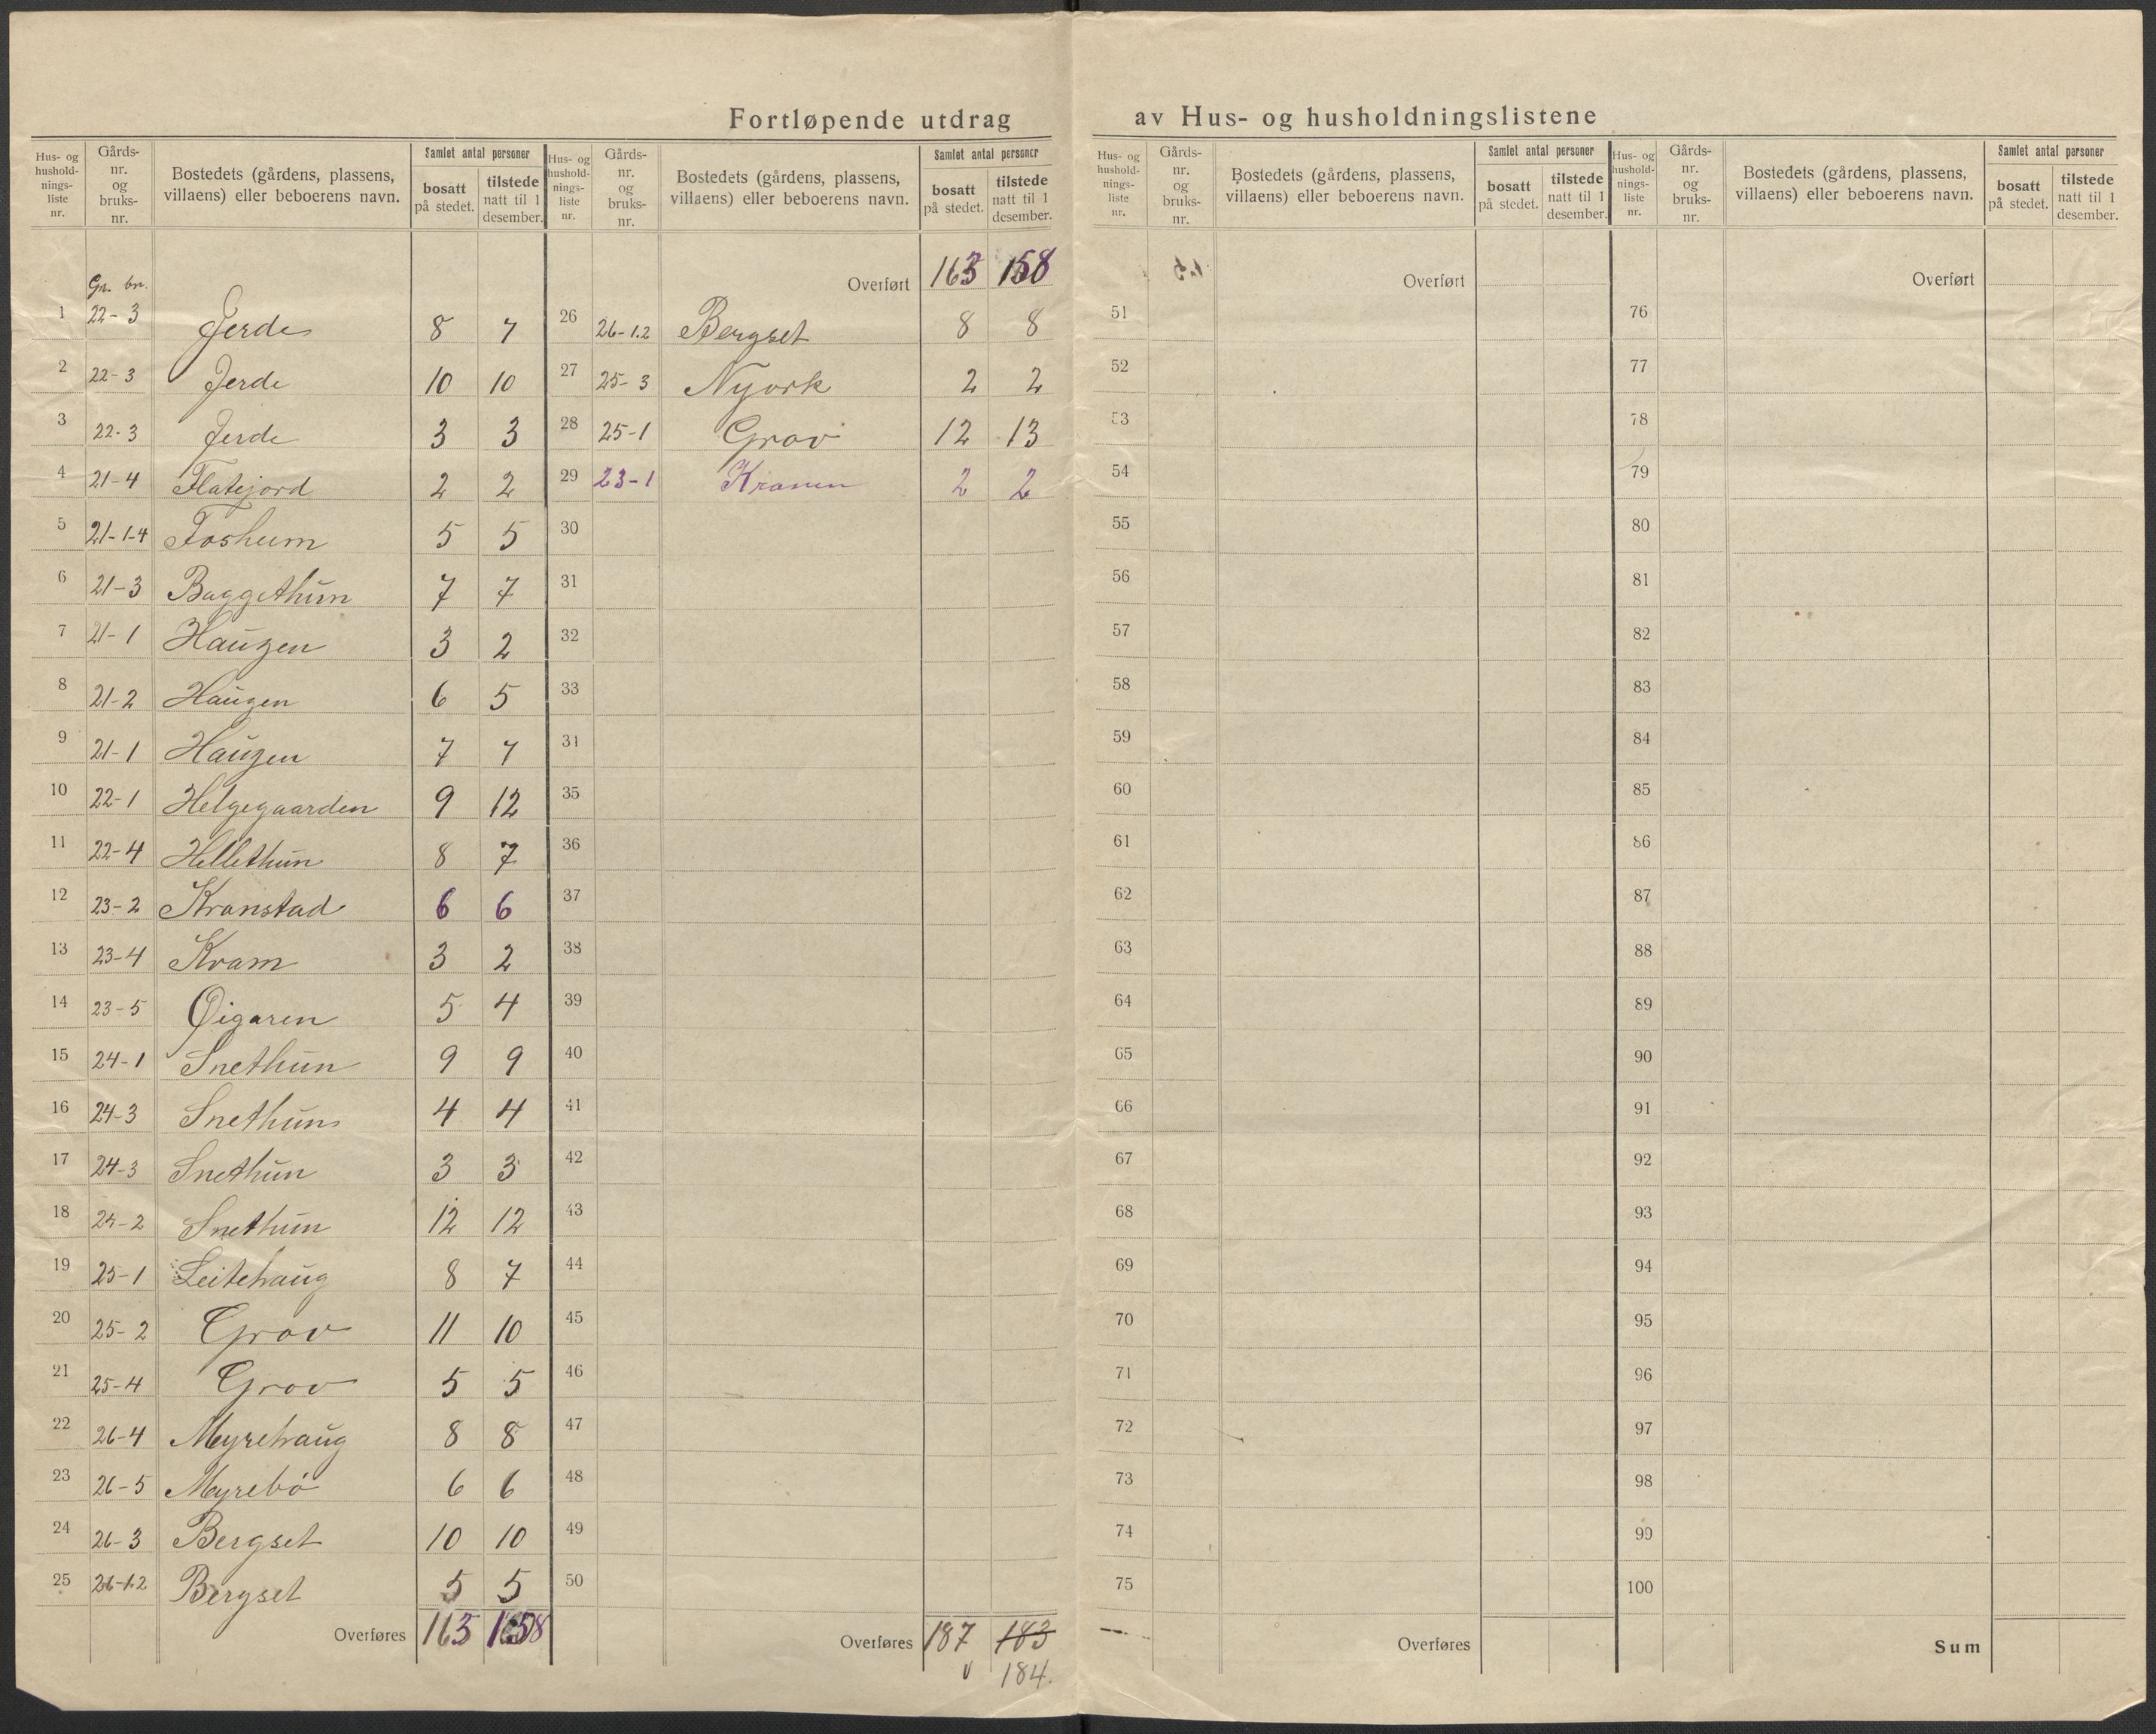 Fortløpende utdrag av Hus- og husholdningslistene
Hus- og hushold-nings-liste nr. Gårds-nr. og bruks-nr. Bostedets (gårdens, plassens, villaens) eller beboerens navn. Samlet antal personer bosatt på stedet. tilstede natt til 1 desember.
Gn. bn.
1 22-3 Jerde 8 7
2 22-3 Jerde 10 10
3 22-3 Jerde 3 3
4 21-4 Flatejord 2 2
5 21-1-4 Foshum 5 5
6 21-3 Baggethun 7 7
7 21-1 Haugen 3 2
8 21-2 Haugen 6 5
9 21-1 Haugen 7 7
10 22-1 Helgegaarden 9 12
11 22-4 Hellethun 8 7
12 23-2 Kranstad 6 6
13 23-4 Kvam 3 2
14 23-5 Øigaren 5 4
15 24-1 Snethun 9 9
16 24-3 Snethun 4 4
17 24-3 Snethun 3 3
18 24-2 Snethun 12 12
19 25-1 Leitehaug 8 7
20 25-2 Grov 11 10
21 25-4 Grov 5 5
22 26-4 Myrehaug 8 8
23 26-5 Myrebö 6 6
24 26-3 Bergset 10 10
25 26-1.2 Bergset 5 5
Overføres 163 158
Hus- og hushold-nings-liste nr. Gårds-nr. og bruks-nr. Bostedets (gårdens, plassens, villaens) eller beboerens navn. Samlet antal personer bosatt på stedet. tilstede natt til 1 desember.
Overført 163 158
26 26-1.2 Bergset 8 8
27 25-3 Nyork 2 2
28 25-1 Grov 12 13
29 23-1 2 2
30
31
32
33
34
35
36
37
38
39
40
41
42
43
44
45
46
47
48
49
50
Overføres 187 183
184.
Hus- og hushold-nings-liste nr. Gårds-nr. og bruks-nr. Bostedets (gårdens, plassens, villaens) eller beboerens navn. Samlet antal personer bosatt på stedet. tilstede natt til 1 desember.
Overført
51
52
53
54
55
56
57
58
59
60
61
62
63
64
65
66
67
68
69
70
71
72
73
74
75
Overføres
Hus- og hushold-nings-liste nr. Gårds-nr. og bruks-nr. Bostedets (gårdens, plassens, villaens) eller beboerens navn. Samlet antal personer bosatt på stedet. tilstede natt til 1 desember.
Overført
76
77
78
79
80
81
82
83
84
85
86
87
88
89
90
91
92
93
94
95
96
97
98
99
100
Sum